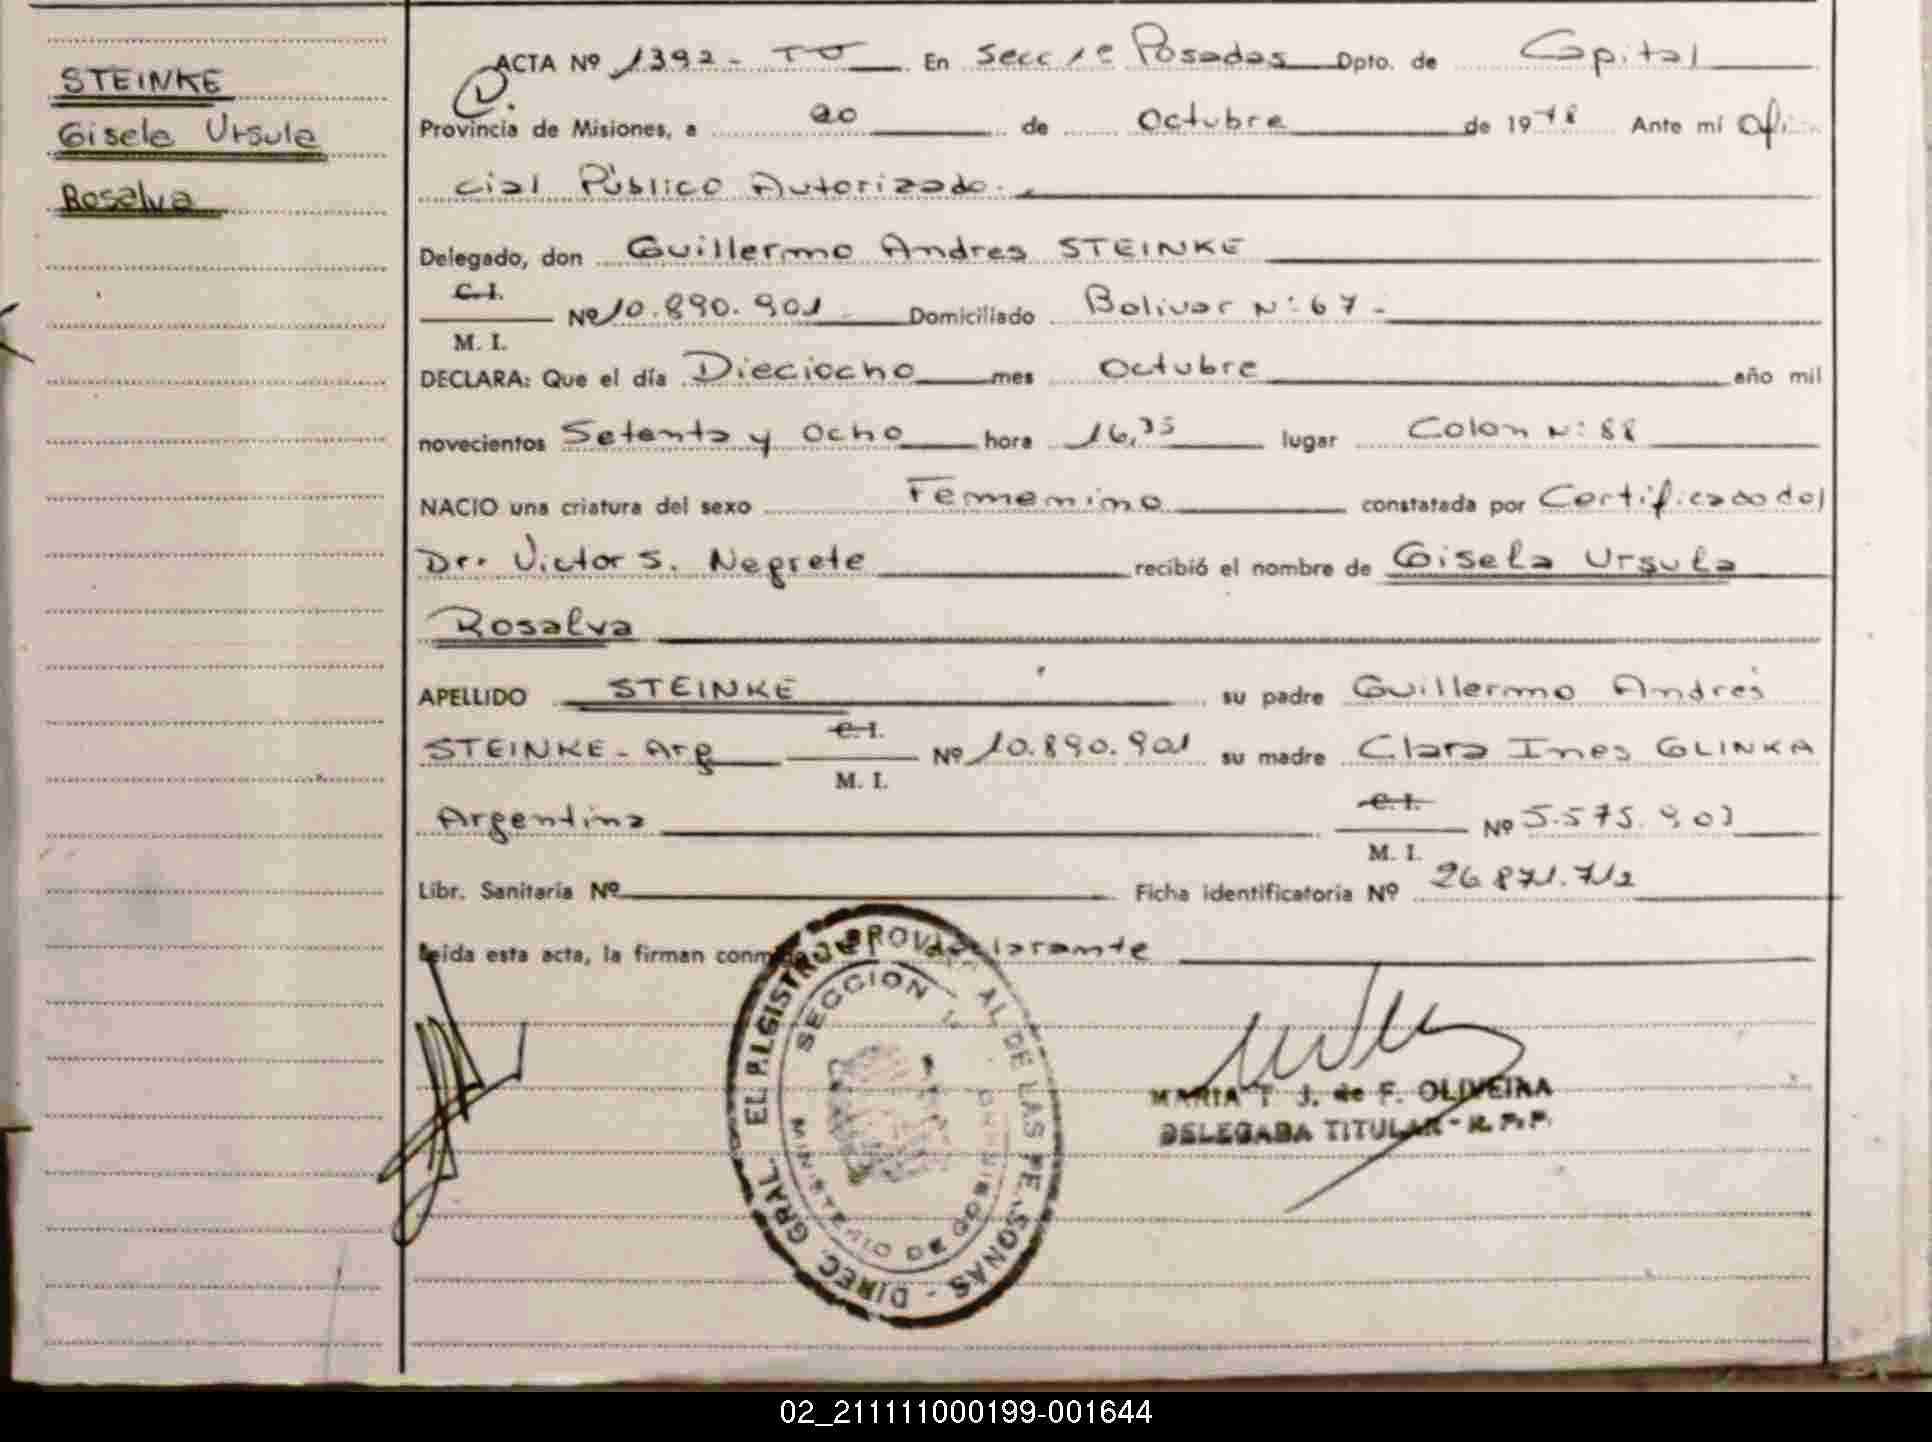 STEINKE
Gisela Ursula
Rosalva
ACTA Nº 1392 - TO En Secc 1ª Posadas Dpto. de Capital
Provincia de Misiones, a 20 de Octubre de 1978 Ante mí Ofi
cial Público Autorizado.
Delegado, don Guillermo Andres STEINKE
C. I.
M. I. Nº 10.890.901 Domiciliado Bolivar Nº 67 -
DECLARA: Que el día Dieciocho mes Octubre año mil
novecientos Setenta y Ocho hora 16,35 lugar Colon Nº 88
NACIO una criatura del sexo Femenino constatada por Certificado del
Dr. Victor S. Negrete recibió el nombre de Gisela Ursula
Rosalva
APELLIDO STEINKE su padre Guillermo Andrés
STEINKE - Arg C. I. M. I. Nº 10.890.901 su madre Clara Ines GLINKA
Argentina C. I. M. I. Nº 5.575.903
Libr. Sanitaria Nº Ficha identificatoria Nº 26.871.712
Leída esta acta, la firman conm declarante
DIREC. GRAL. EL REGISTRO PROVINCIAL DE LAS PERSONAS -
SECCION 1ª
MINISTERIO DE GOBIERNO
MARIA T J. de F. OLIVEIRA
DELEGADA TITULAR - R. P. P.
02_211111000199-001644